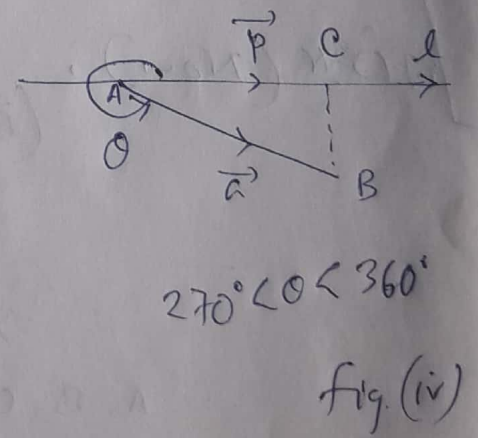 p⃗ C l
A
θ
a⃗ B
270° < θ < 360°
fig. (iv)